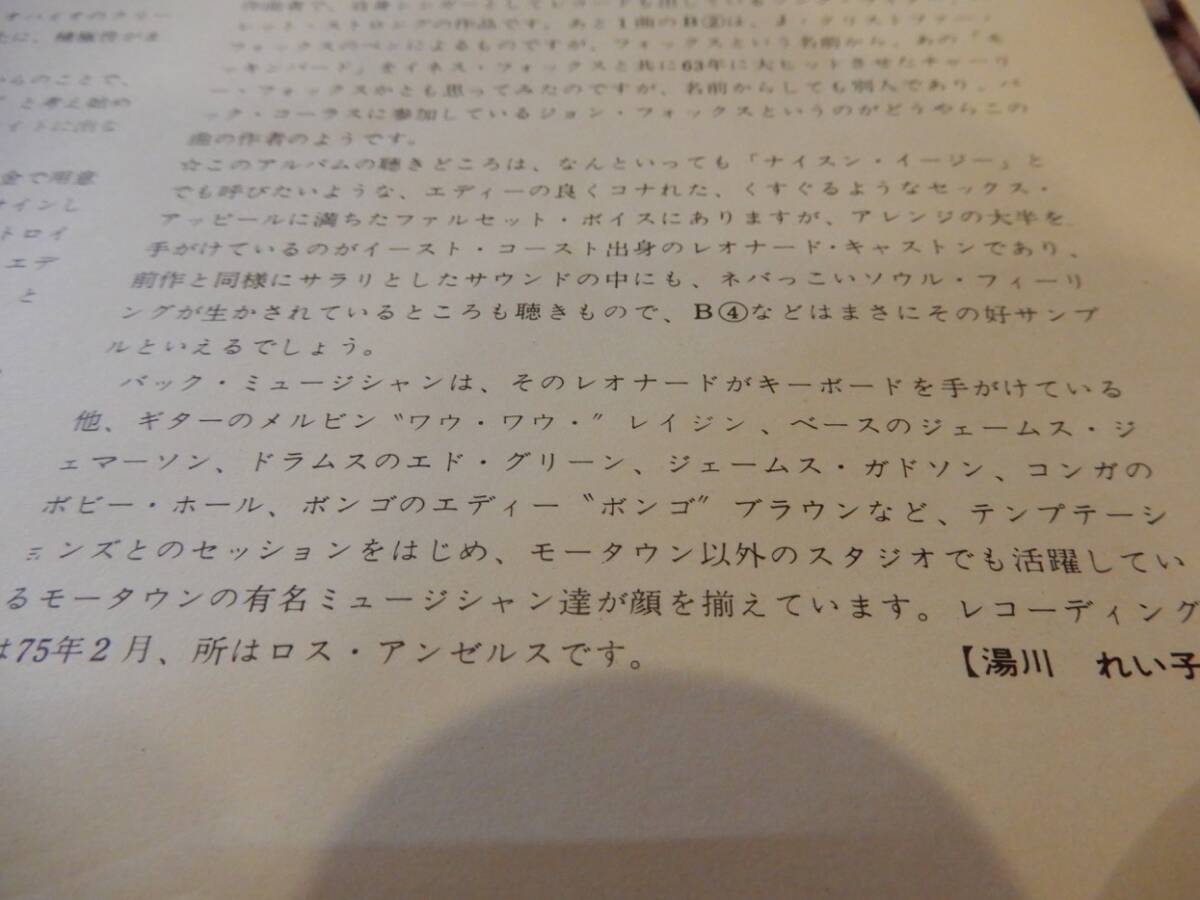 オハイオのクリー
作曲者で、自身シンガーとしてレコードも出しているソング・ライター、バ
レット・ストロングの作品です。あと1曲のB②は、J・クリストファー・
フォックスのペンによるものですが、フォックスという名前から、あの「モ
ッキンバード」をイネス・フォックスと共に63年に大ヒットさせたチャーリ
ー・フォックスかとも思ってみたのですが、名前からしても別人であり、バ
ック・コーラスに参加しているジョン・フォックスというのがどうやらこの
曲の作者のようです。
からのことで、
と考え始め
イトに泊な
金で用意
サインし
トロイ
エデ
と
☆このアルバムの聴きどころは、なんといっても「ナイスン・イージー」と
でも呼びたいような、エディーの良くコナれた、くすぐるようなセックス・
アッピールに満ちたファルセット・ボイスにありますが、アレンジの大半を
手がけているのがイースト・コースト出身のレオナード・キャストンであり、
前作と同様にサラリとしたサウンドの中にも、ネバっこいソウル・フィーリ
ングが生かされているところも聴きもので、B④などはまさにその好サンプ
ルといえるでしょう。
バック・ミュージシャンは、そのレオナードがキーボードを手がけている
他、ギターのメルビン〝ワウ・ワウ・〟レイジン、ベースのジェームス・ジ
ェマーソン、ドラムスのエド・グリーン、ジェームス・ガドソン、コンガの
ボビー・ホール、ボンゴのエディー〝ボンゴ〟ブラウンなど、テンプテーシ
ョンズとのセッションをはじめ、モータウン以外のスタジオでも活躍してい
るモータウンの有名ミュージシャン達が顔を揃えています。レコーディング
は75年2月、所はロス・アンゼルスです。
【湯川 れい子